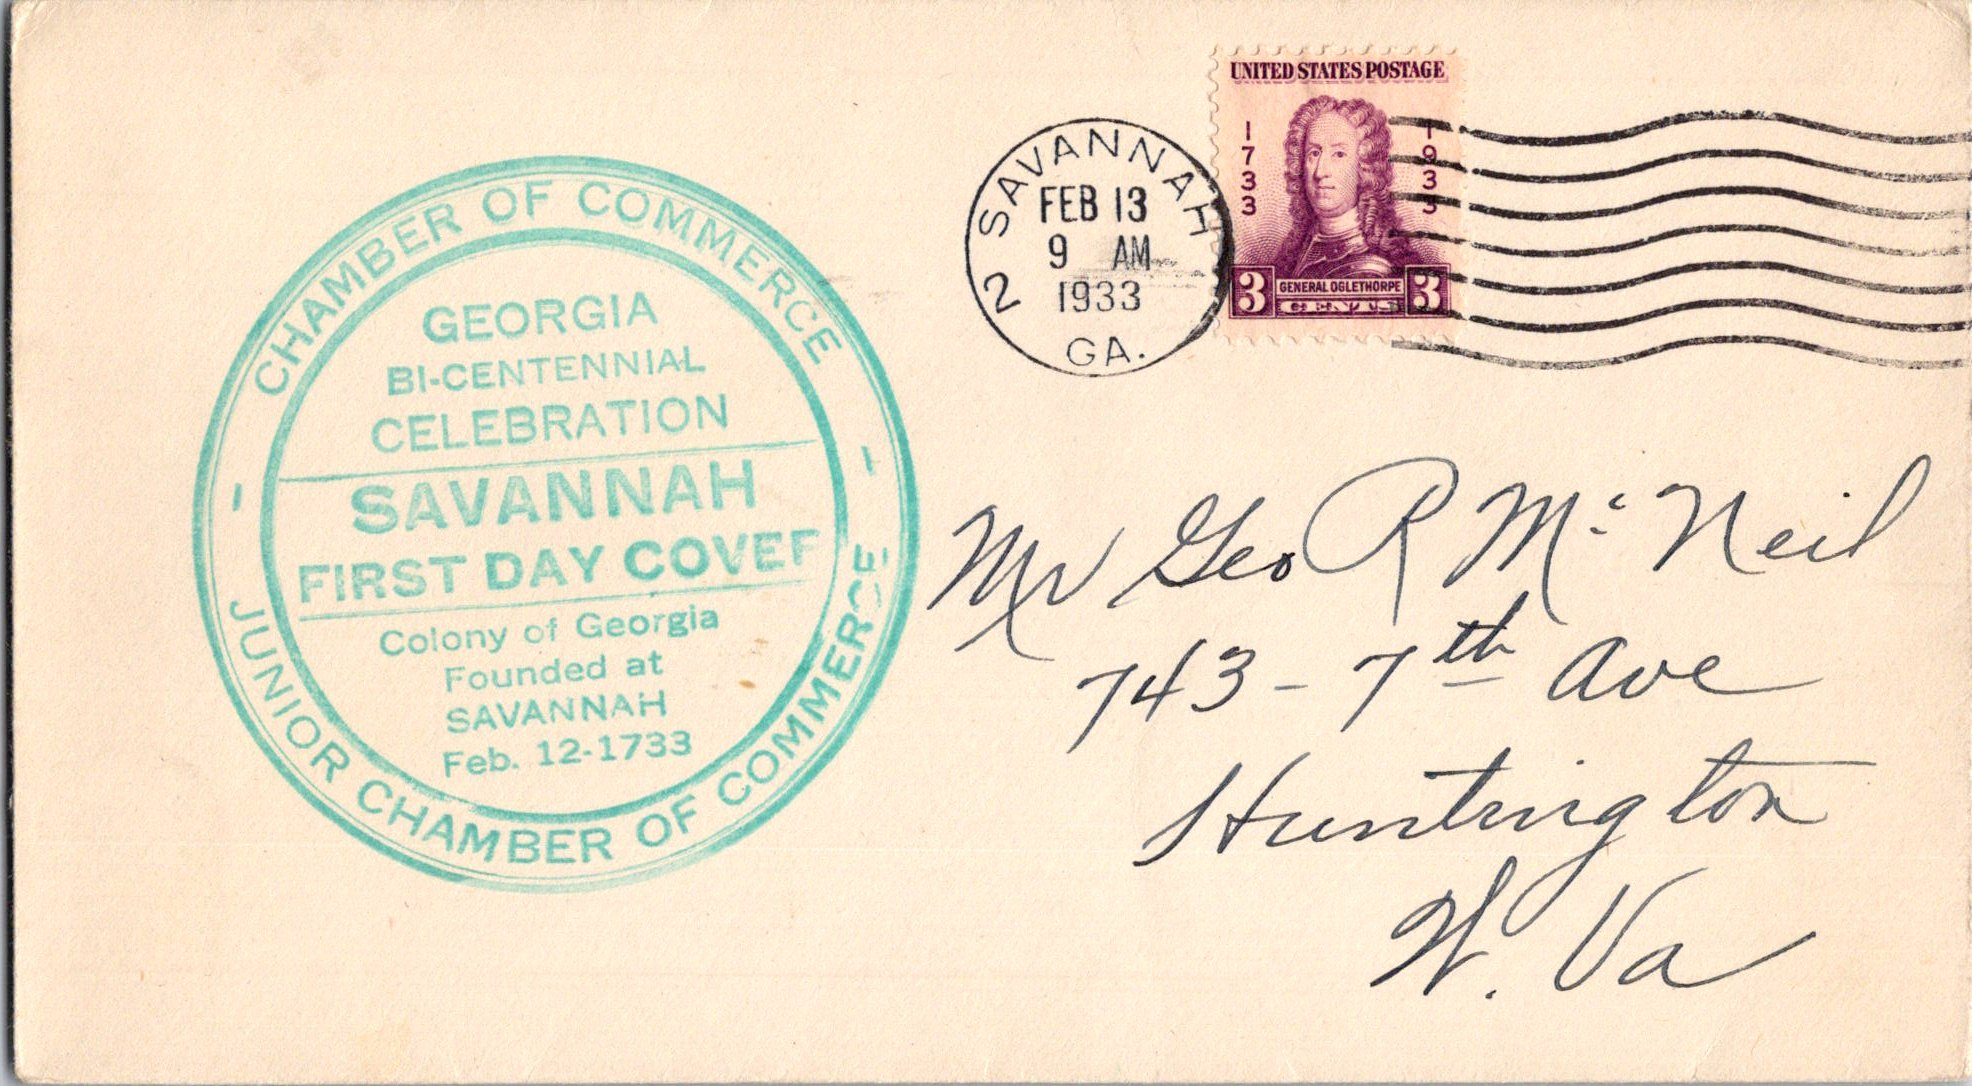 CHAMBER OF COMMERCE
GEORGIA
BI-CENTENNIAL
CELEBRATION
SAVANNAH
FIRST DAY COVER
Colony of Georgia
Founded at
SAVANNAH
Feb. 12-1733
JUNIOR CHAMBER OF COMMERCE
SAVANNAH
FEB 13
9 AM
1933
2
GA.
UNITED STATES POSTAGE
1733 1933
3 GENERAL OGLETHORPE 3
CENTS
Mr Geo R Mc Neil
743 - 7th Ave
Huntington
W. Va